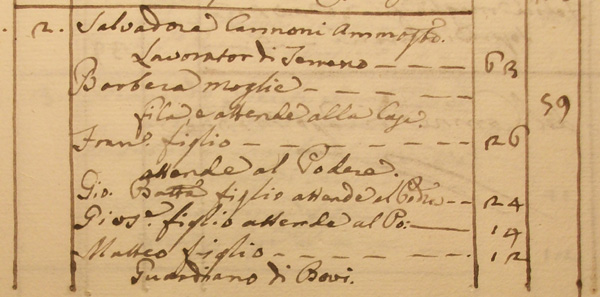 2. Salvadore Cannoni Ammog.to
Lavorator di Terreno — — — 63
Barbera moglie — — — — 59
fila, e attende alla Casa.
Fran.o figlio — — — — — — 26
attende al Podere.
Gio. Batta figlio attende al Podre — — 24
Gios.e figlio attende al Po: — 14
Matteo figlio — — — — — 12
Guardiano di Bovi.